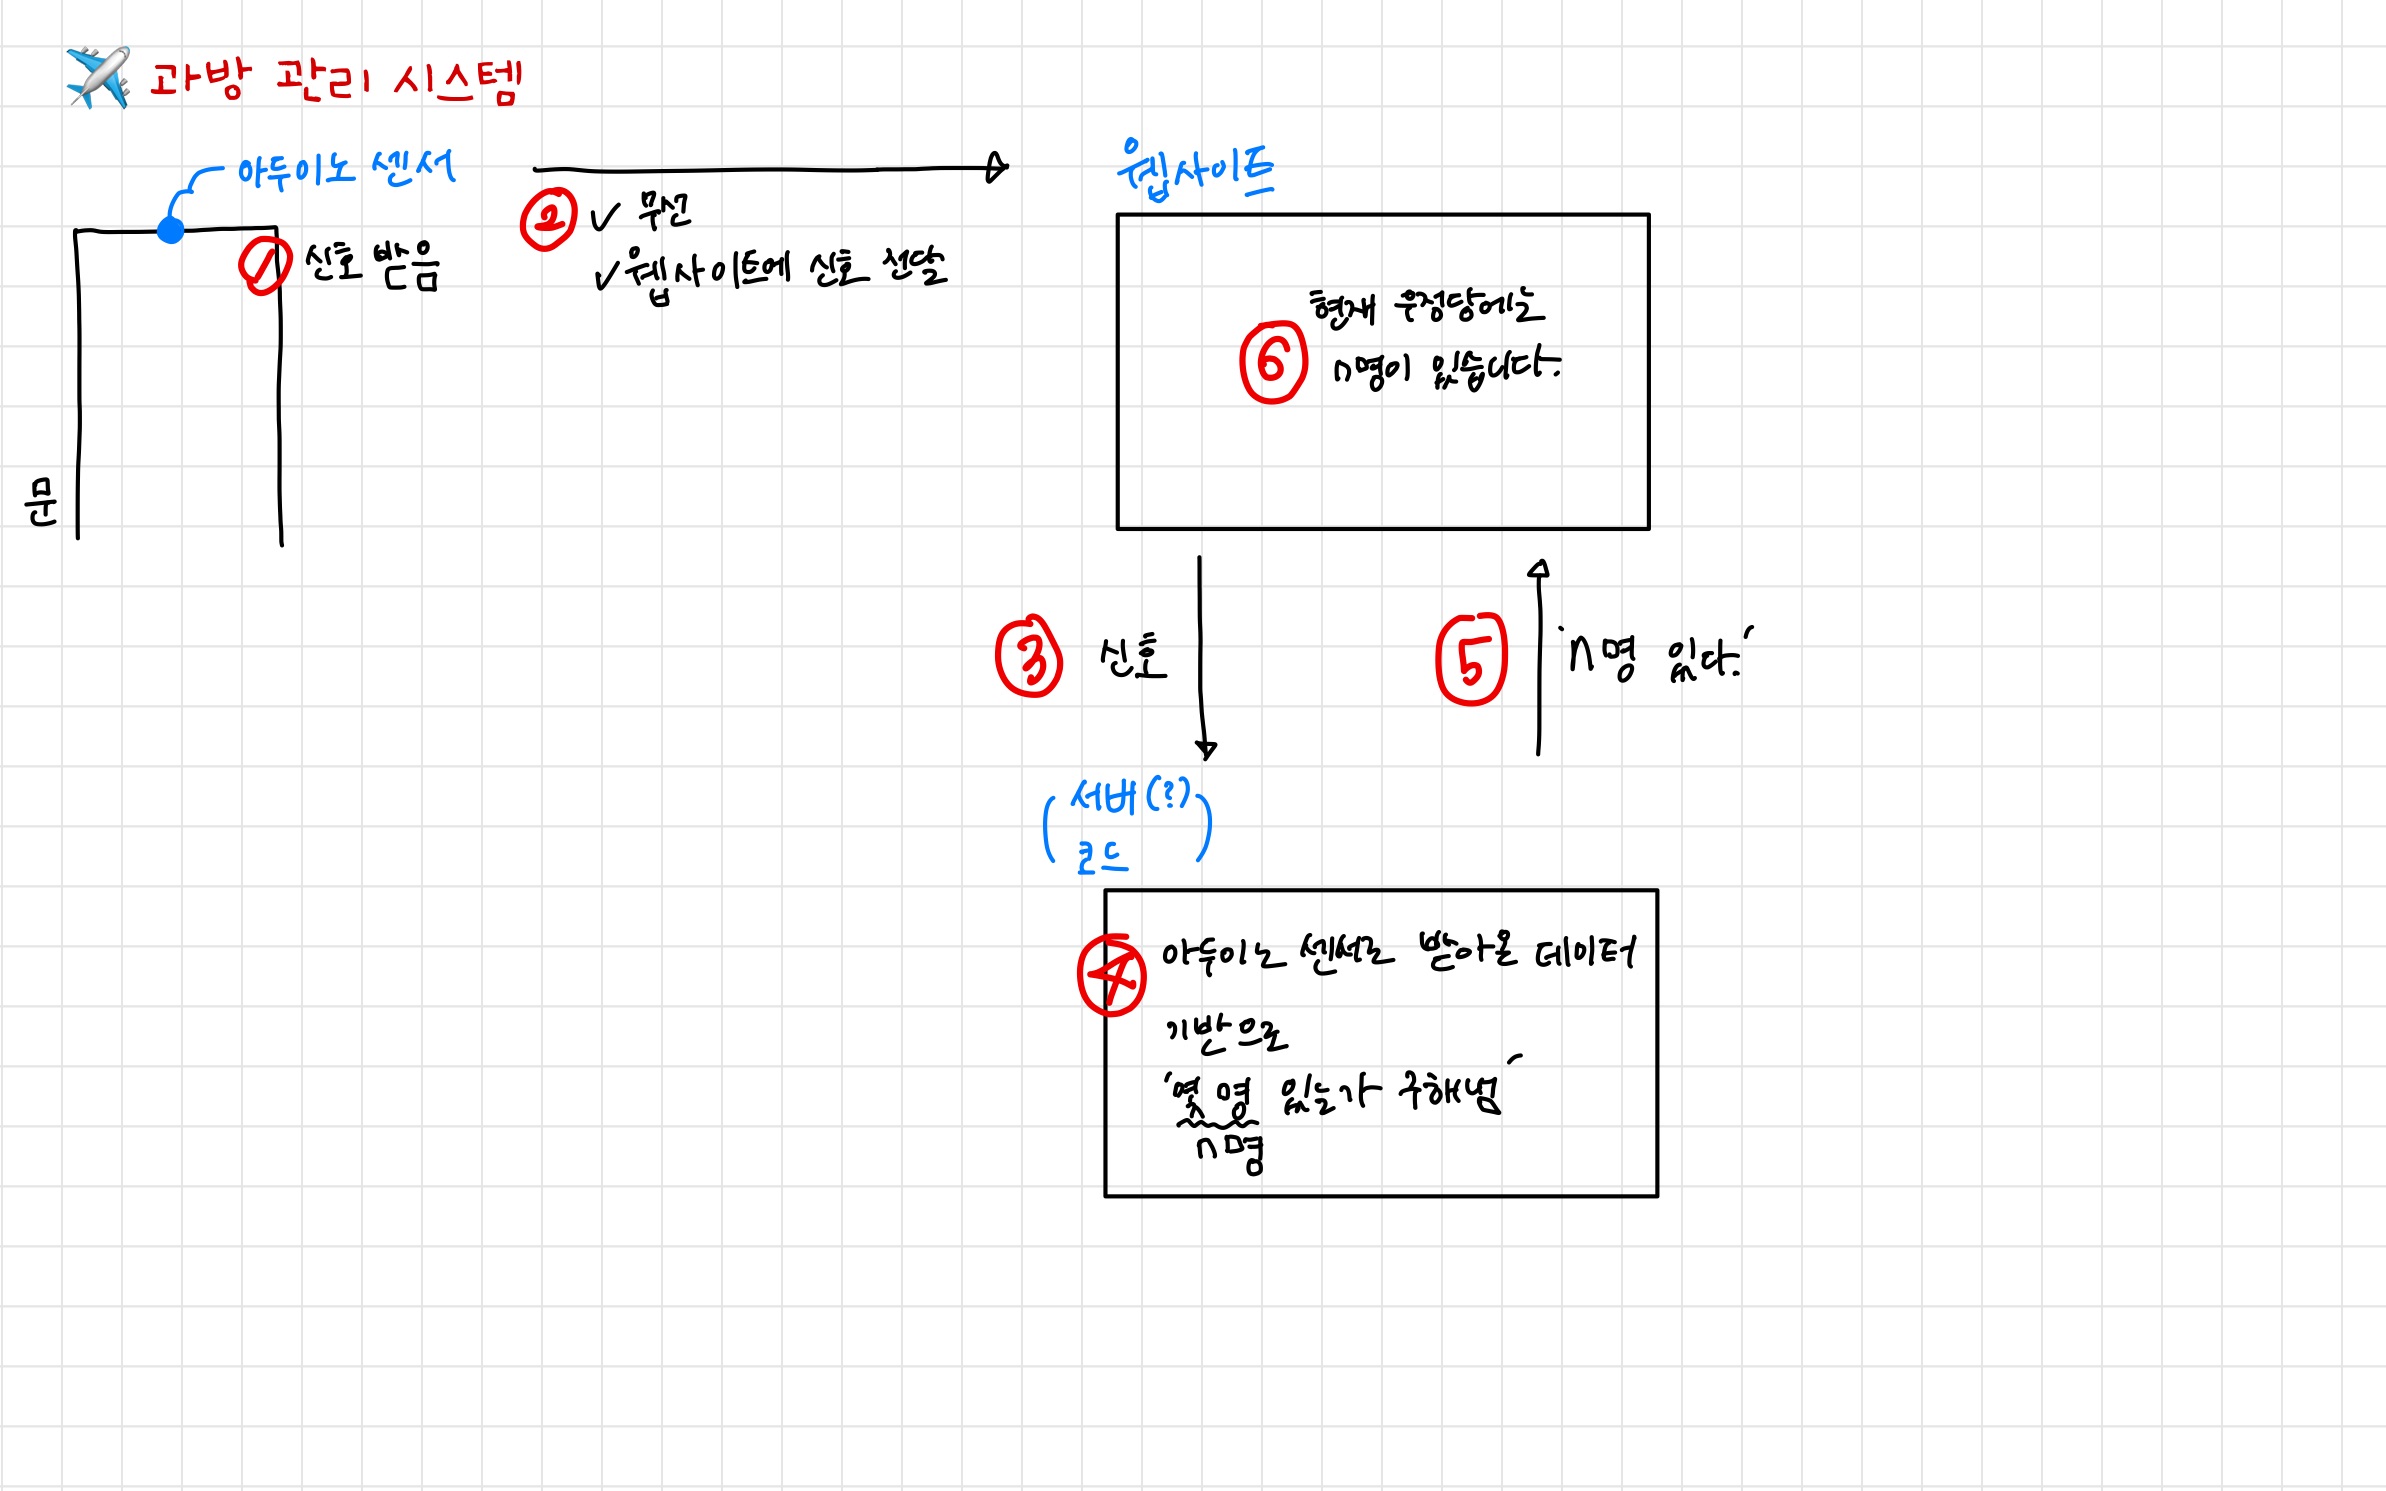 과방 관리 시스템
아두이노 센서
① 신호 받음
문
② ✓ 무선
✓ 웹사이트에 신호 전달
웹사이트
⑥ 현재 우정당에는
n명이 있습니다.
③ 신호
⑤ "n명 있다."
(서버(?)
코드)
④ 아두이노 센서로 받아온 데이터
기반으로
"몇 명 있는가 구해냄"
n명